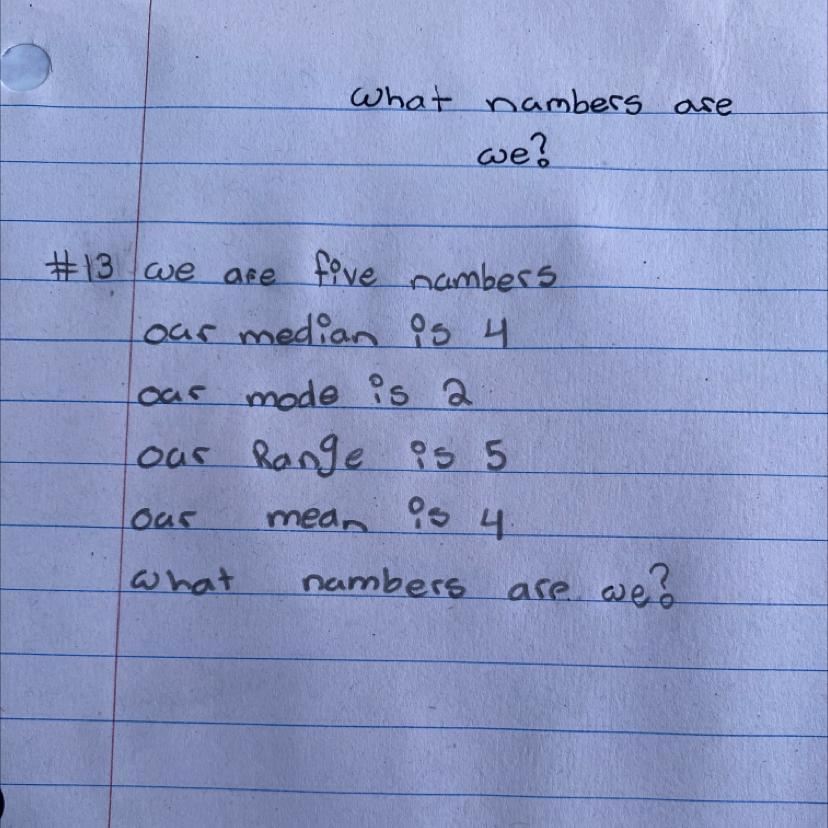 what numbers are
we?
#13 we are five numbers
our median is 4
our mode is 2
our Range is 5
our mean is 4.
what numbers are we?